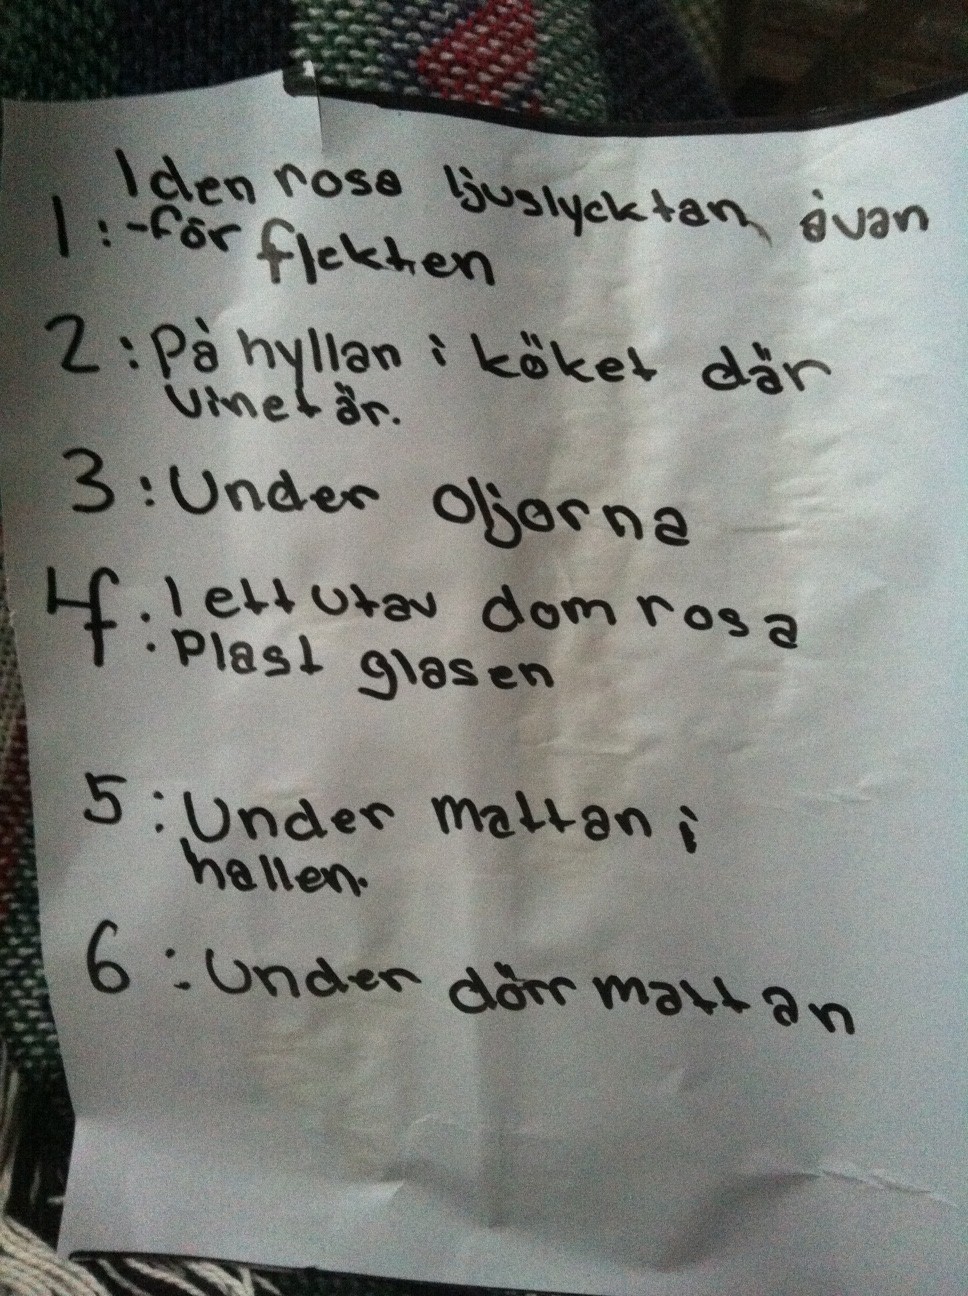 I den rosa ljuslycktan åvan
1:-för flekten
2: På hyllan i köket där
vinet är.
3: Under oljorna
4: I ett utav dom rosa
Plast glasen
5: Under mattan i
hallen.
6: Under dörr mattan